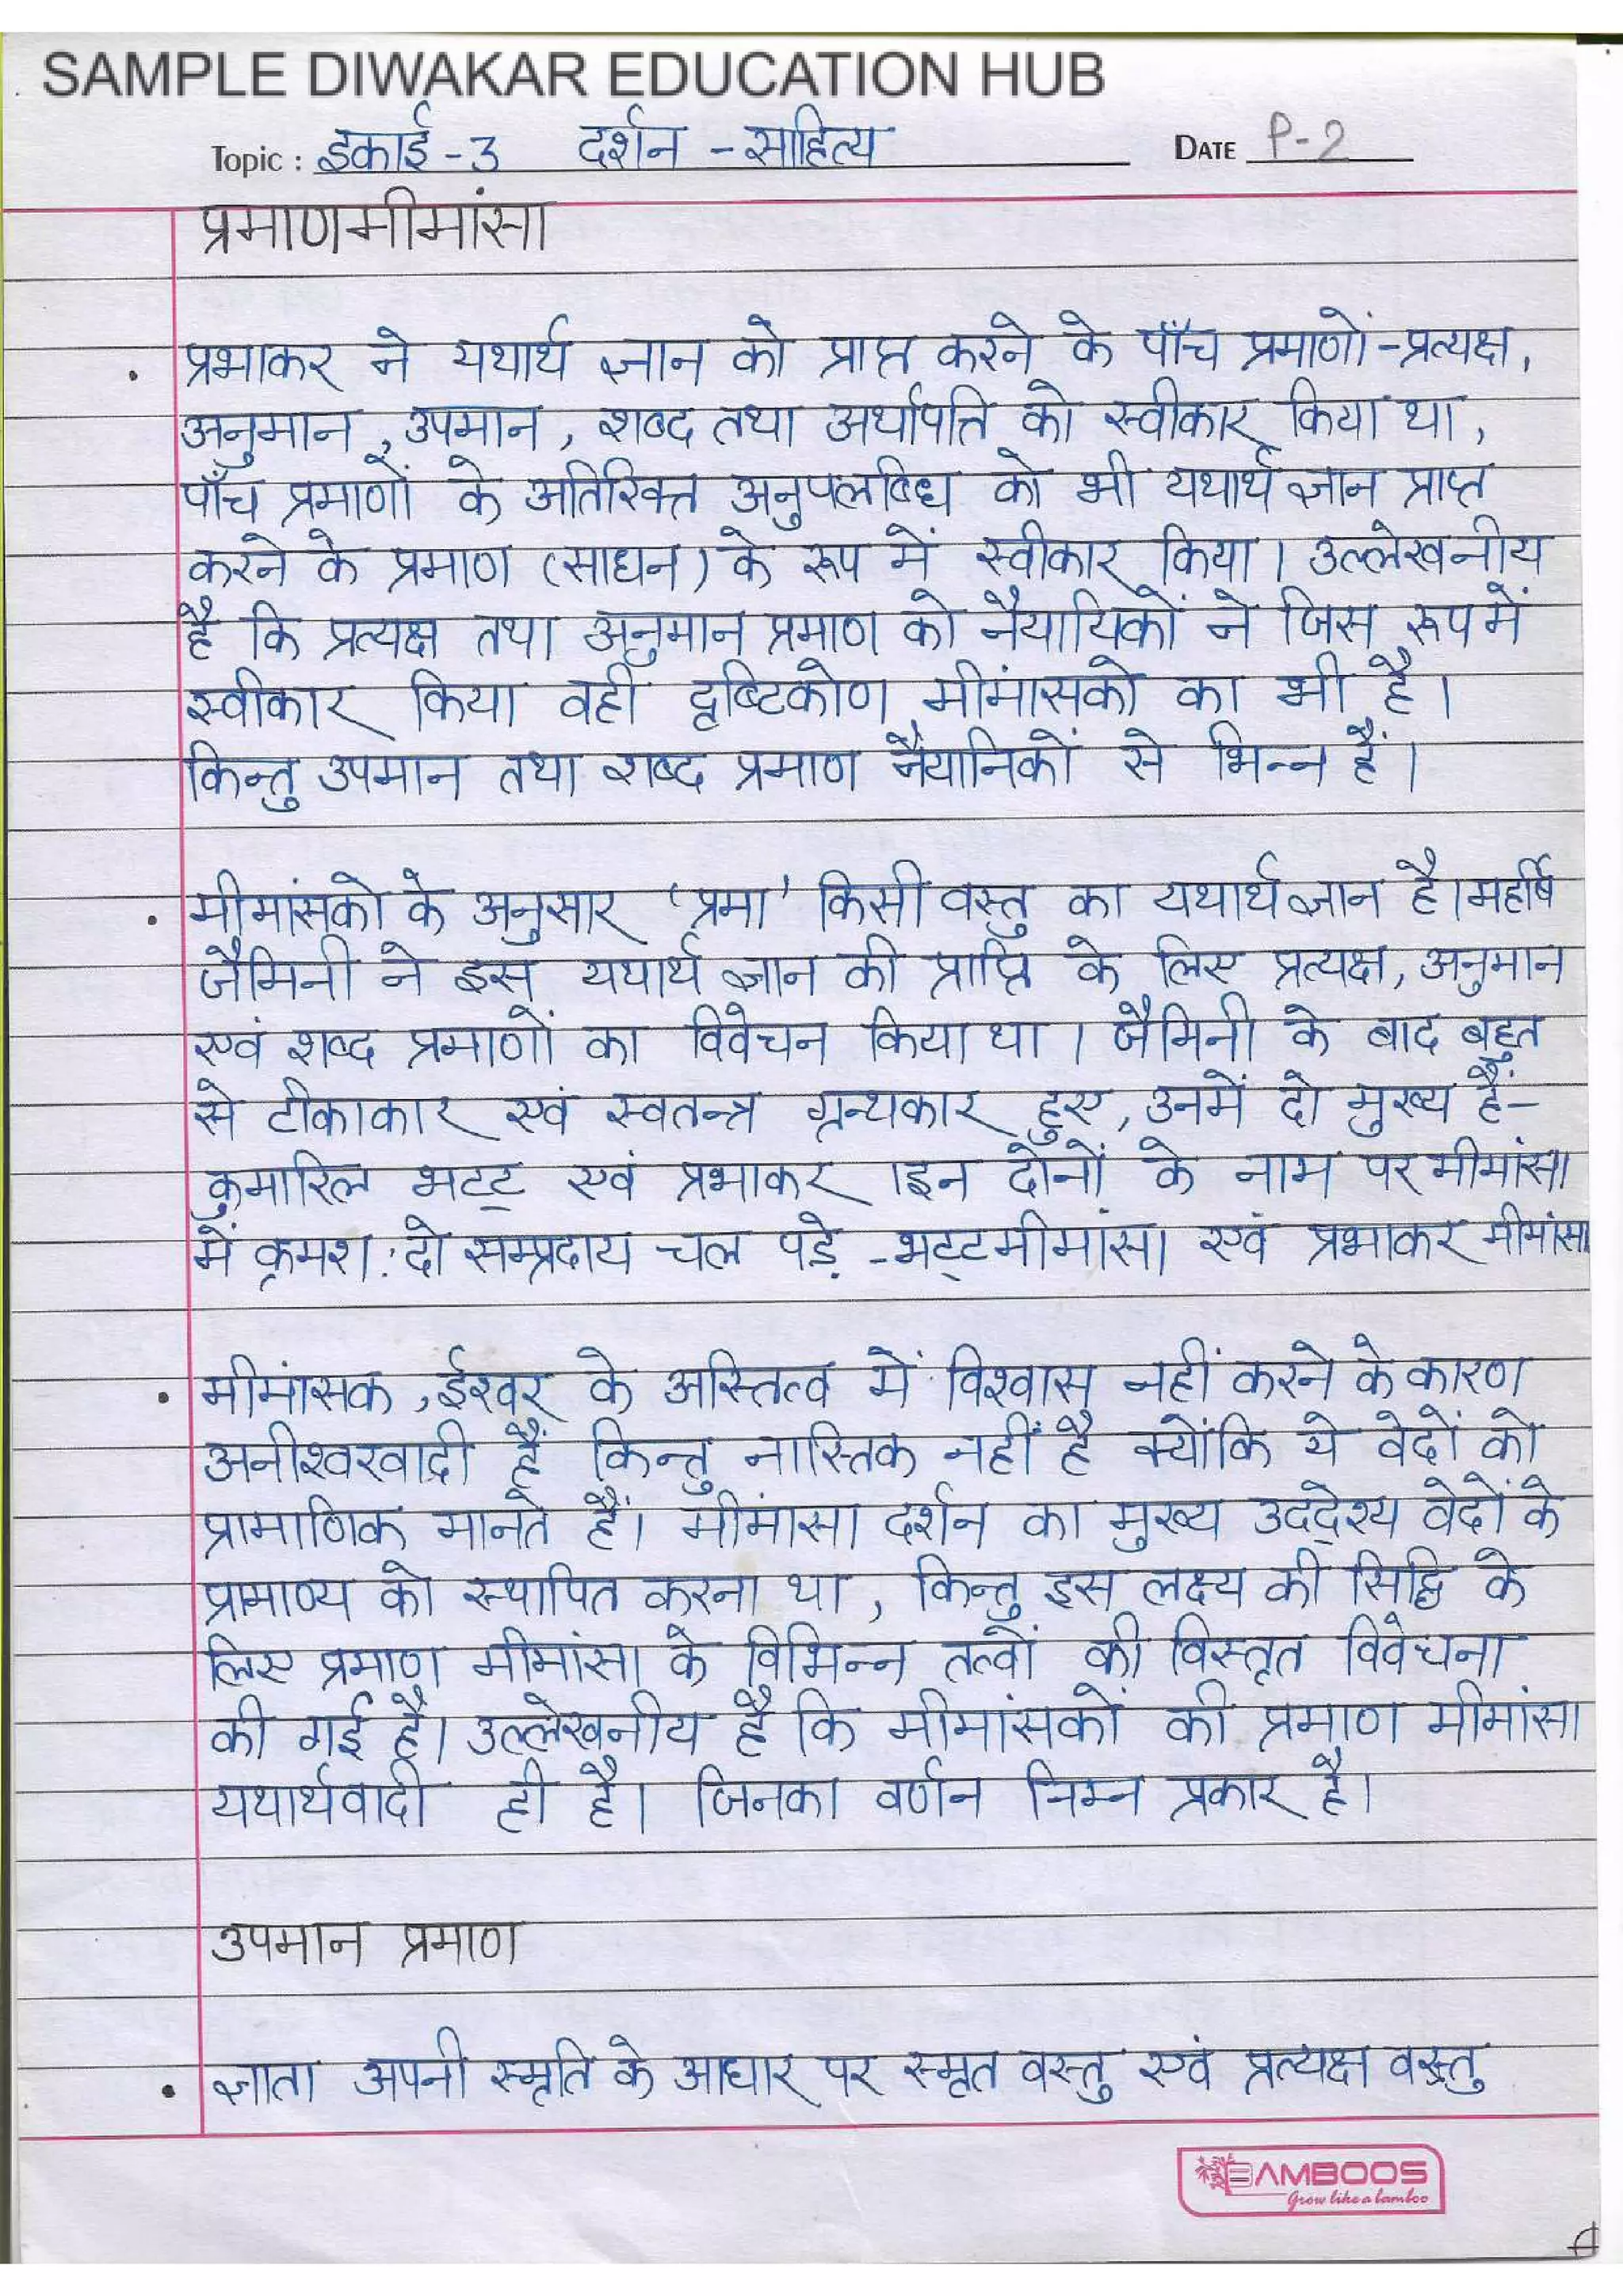 SAMPLE DIWAKAR EDUCATION HUB
Topic : इकाई-3 दर्शन - साहित्य DATE P-2
प्रमाणमीमांसा
प्रभाकर ने यथार्थ ज्ञान को प्राप्त करने के पाँच प्रमाणों - प्रत्यक्ष,
अनुमान, उपमान, शब्द तथा अर्थापत्ति को स्वीकार किया था,
पाँच प्रमाणों के अतिरिक्त अनुपलब्धि को भी यथार्थ ज्ञान प्राप्त
करने के प्रमाण (साधन) के रूप में स्वीकार किया। उल्लेखनीय
है कि प्रत्यक्ष तथा अनुमान प्रमाण को नैयायिकों ने जिस रूप में
स्वीकार किया वही दृष्टिकोण मीमांसको का भी है।
किन्तु उपमान तथा शब्द प्रमाण नैयानिकों से भिन्न हैं।
मीमांसको के अनुसार 'प्रमा' किसी वस्तु का यथार्थ ज्ञान है। महर्षि
जैमिनी ने इस यथार्थ ज्ञान की प्राप्ति के लिए प्रत्यक्ष, अनुमान
एवं शब्द प्रमाणों का विवेचन किया था। जैमिनी के बाद बहुत
से टीकाकार एवं स्वतन्त्र ग्रन्थकार हुए, उनमें दो मुख्य हैं-
कुमारिल भट्ट एवं प्रभाकर। इन दोनों के नाम पर मीमांसा
में क्रमश: दो सम्प्रदाय चल पड़े - भट्टमीमांसा एवं प्रभाकर मीमांसा
मीमांसक, ईश्वर के अस्तित्व में विश्वास नहीं करने के कारण
अनीश्वरवादी हैं किन्तु नास्तिक नहीं है क्योंकि ये वेदों को
प्रामाणिक मानते हैं। मीमांसा दर्शन का मुख्य उद्देश्य वेदों के
प्रामाण्य को स्थापित करना था, किन्तु इस लक्ष्य की सिद्धि के
लिए प्रमाण मीमांसा के विभिन्न तत्वों की विस्तृत विवेचना
की गई है। उल्लेखनीय है कि मीमांसकों की प्रमाण मीमांसा
यथार्थवादी ही है। जिनका वर्णन निम्न प्रकार है।
उपमान प्रमाण
ज्ञाता अपनी स्मृति के आधार पर स्मृत वस्तु एवं प्रत्यक्ष वस्तु
BAMBOOS
Grow like a bamboo